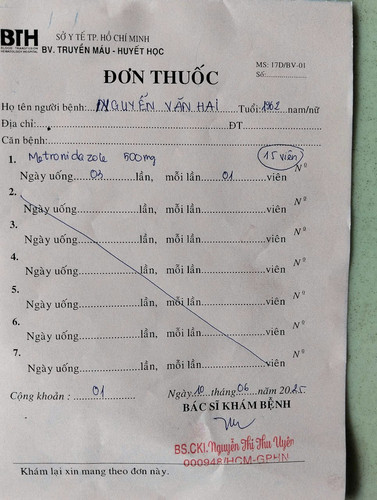 BTH
BLOOD TRANSFUSION
HEMATOLOGY HOSPITAL
SỞ Y TẾ TP. HỒ CHÍ MINH
BV. TRUYỀN MÁU - HUYẾT HỌC
MS: 17D/BV-01
Số:
ĐƠN THUỐC
Họ tên người bệnh: NGUYỄN VĂN HAI Tuổi: 1962 nam/nữ
Địa chỉ: ĐT
Căn bệnh:
1. Metronidazole 500mg 15 viên N°
Ngày uống 03 lần, mỗi lần 01 viên
2. N°
Ngày uống lần, mỗi lần viên
3. N°
Ngày uống lần, mỗi lần viên
4. N°
Ngày uống lần, mỗi lần viên
5. N°
Ngày uống lần, mỗi lần viên
6. N°
Ngày uống lần, mỗi lần viên
7. N°
Ngày uống lần, mỗi lần viên
Cộng khoản: 01 Ngày 10 tháng 06 năm 2025
BÁC SĨ KHÁM BỆNH
BS.CKI. Nguyễn Thị Thu Uyên
000948/HCM-GPHN
Khám lại xin mang theo đơn này.